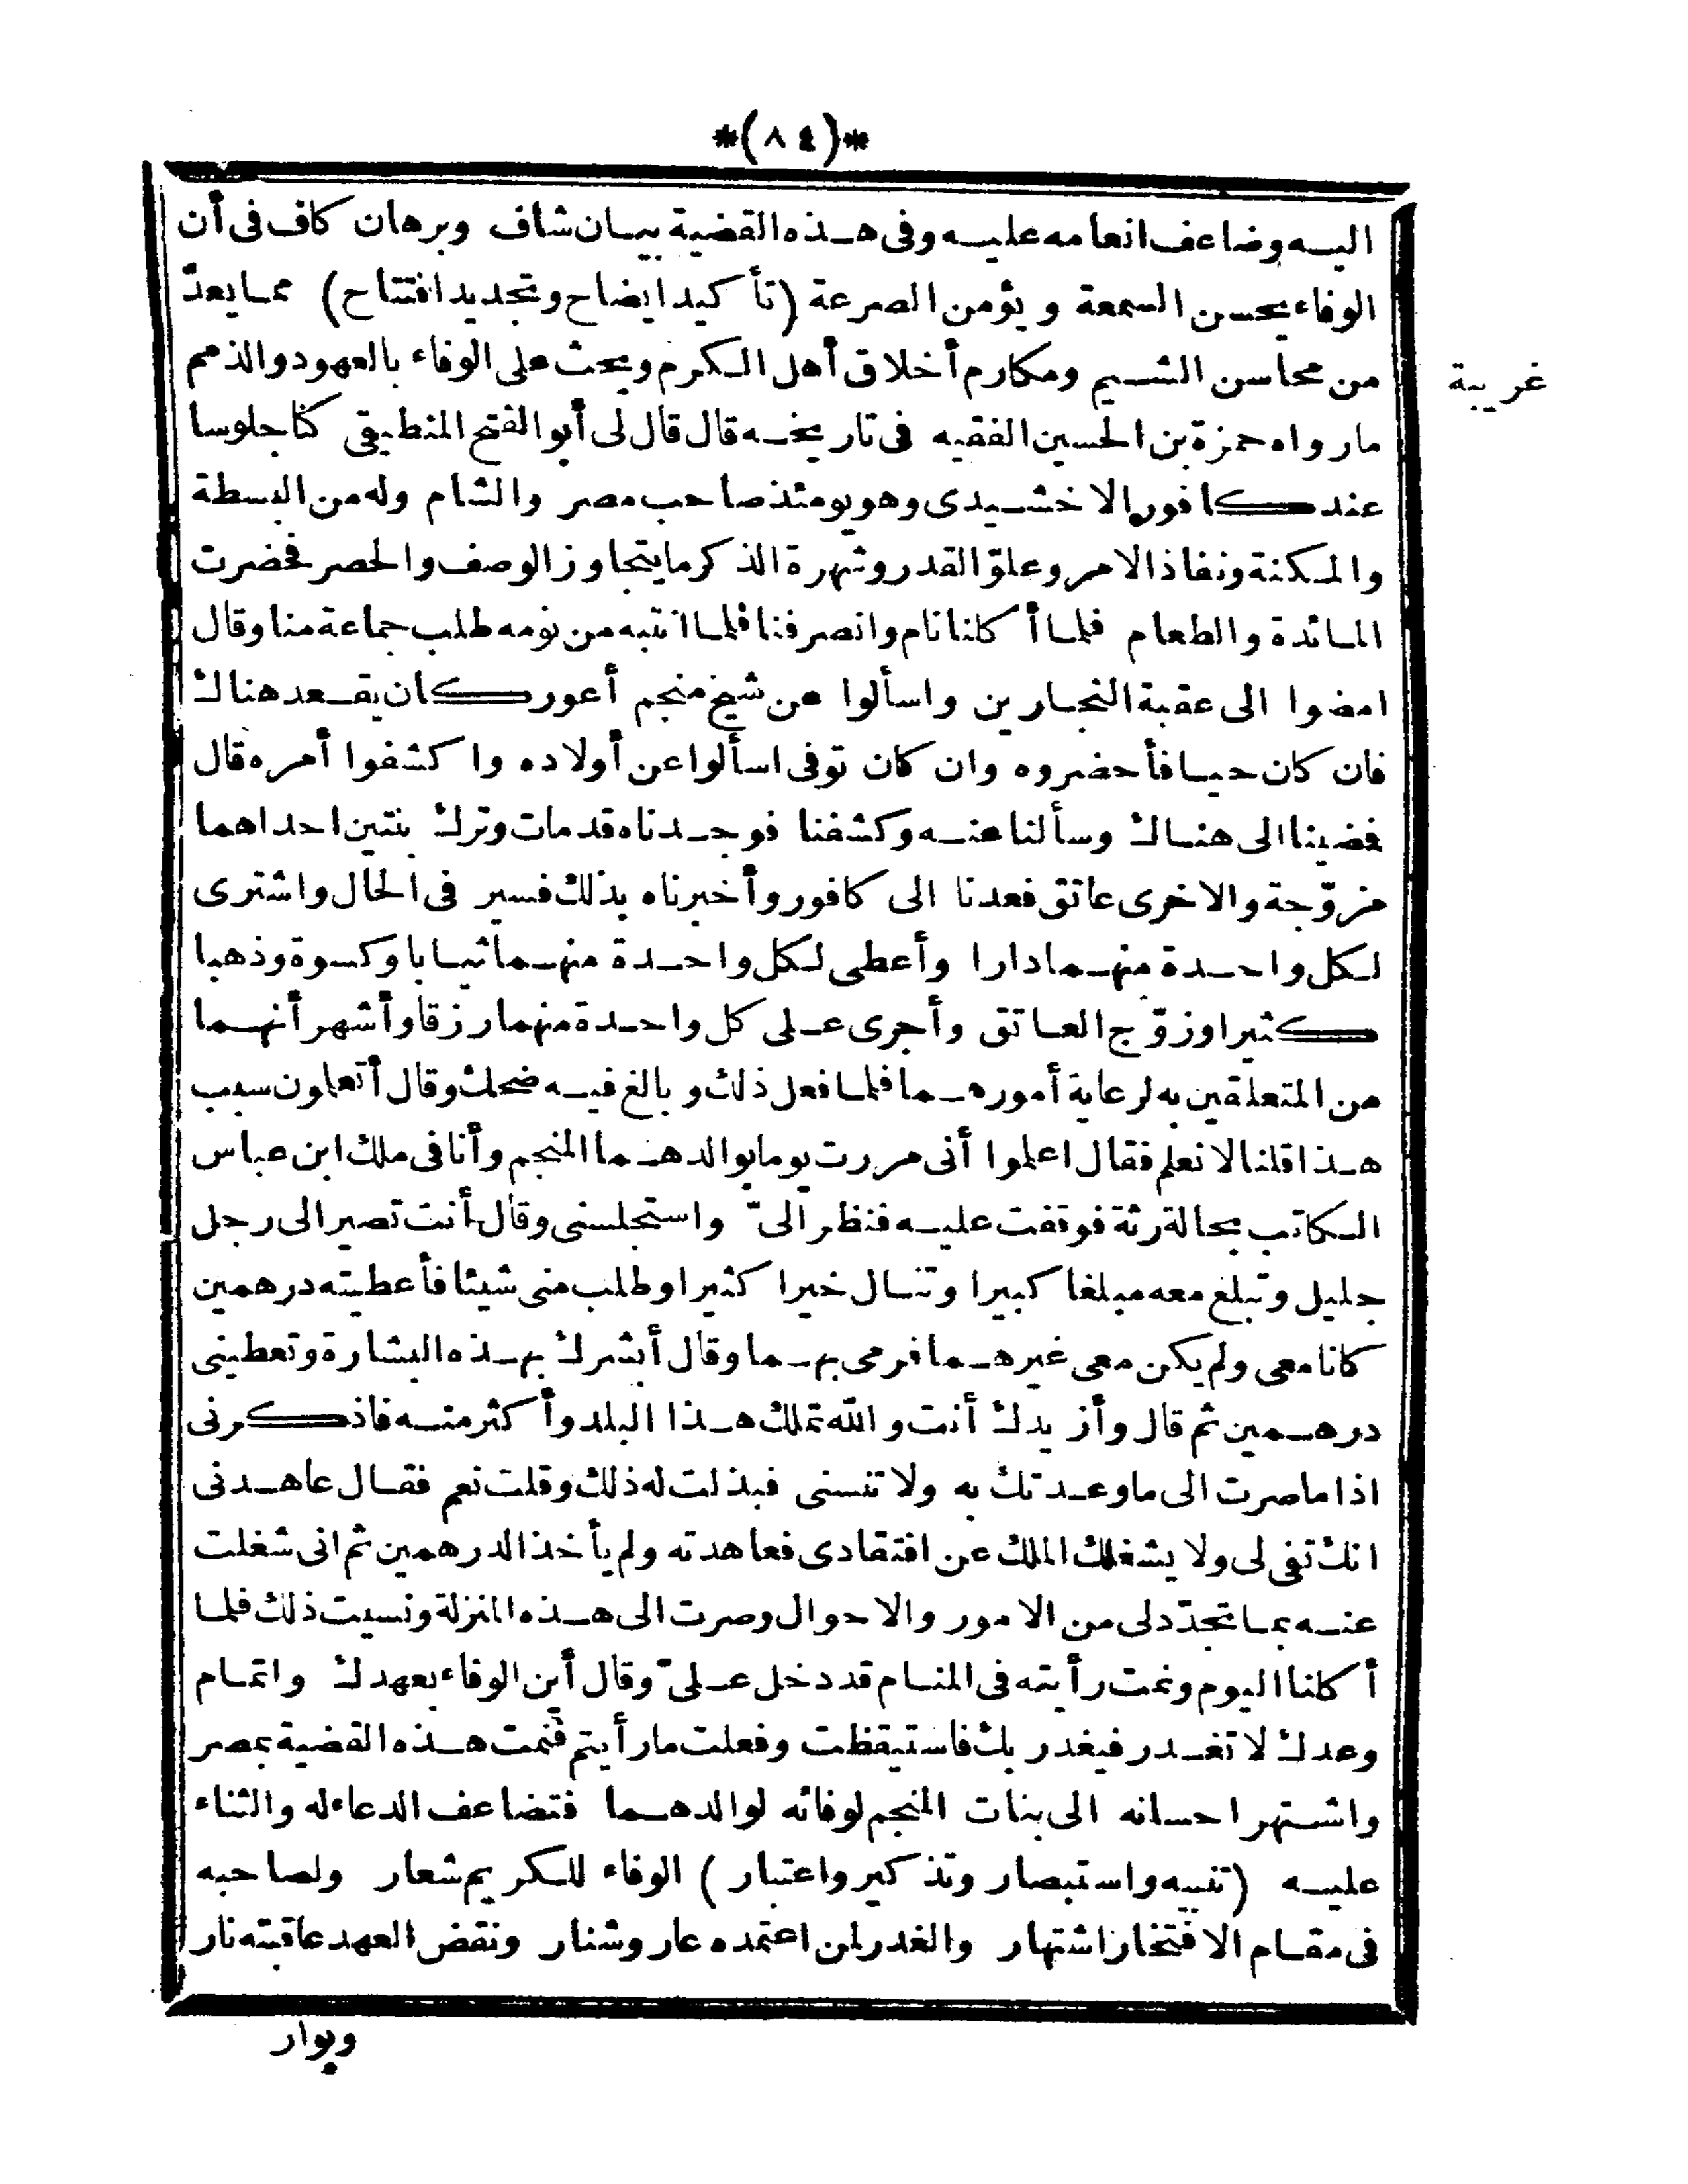 *(٨٤)*
اليه وضاعف انعامه عليه وفى هذه القضية بيان شاف وبرهان كاف فى أن
الوفاء يحسن السمعة ويؤمن الصرعة (تأكيد ايضاح وتجديد افتتاح) مما يعدّ
من محاسن الشيم ومكارم أخلاق أهل الكرم ويحث على الوفاء بالعهود والذمم
غريبة
مارواه حمزة بن الحسين الفقيه فى تاريخه قال قال لى أبو الفتح المنطيقى كنا جلوسا
عند كافور الاخشيدى وهو يومئذ صاحب مصر والشام وله من البسطة
والمكنة ونفاذ الامر وعلوّ القدر وشهرة الذكر ما يتجاوز الوصف والحصر فحضرت
المائدة والطعام فلما أكلنا نام وانصرفنا فلما انتبه من نومه طلب جماعة منا وقال
امضوا الى عقبة النجارين واسألوا عن شيخ منجم أعور كان يقعد هناك
فان كان حيا فأحضروه وان كان توفى اسألوا عن أولاده واكشفوا أمره قال
فضينا الى هناك وسألنا عنه وكشفنا فوجدناه قد مات وترك بنتين احداهما
مزوّجة والاخرى عاتق فعدنا الى كافور وأخبرناه بذلك فسير فى الحال واشترى
لكل واحدة منهما دارا وأعطى لكل واحدة منهما ثيابا وكسوة وذهبا
كثيرا وزوّج العاتق وأجرى على كل واحدة منهما رزقا وأشهر أنهما
من المتعلقين به لرعاية أمورهما فلما فعل ذلك وبالغ فيه ضحك وقال أتعلون سبب
هذا قلنا لا نعلم فقال اعلموا أنى مررت يوما بوالدهما المنجم وأنا فى ملك ابن عباس
الكاتب بحالة رثة فوقفت عليه فنظر الىّ واستجلسنى وقال أنت تصير الى رجل
جليل وتبلغ معه مبلغا كبيرا وتنال خيرا كثيرا وطلب منى شيئا فأعطيته درهمين
كانا معى ولم يكن معى غيرهما فرمى بهما وقال أبشرك بهذه البشارة وتعطينى
درهمين ثم قال وأزيدك أنت والله تملك هذا البلد وأكثر منه فاذكرنى
اذا ما صرت الى ما وعدتك به ولا تنسنى فبذلت له ذلك وقلت نعم فقال عاهدنى
انك تفى لى ولا يشغلك الملك عن افتقادى فعاهدته ولم يأخذ الدرهمين ثم انى شغلت
عنه بما تجدّد لى من الامور والاحوال وصرت الى هذه المنزلة ونسيت ذلك فلما
أكلنا اليوم ونمت رأيته فى المنام قد دخل علىّ وقال أين الوفاء بعهدك واتمام
وعدك لا تغدر فيغدر بك فاستيقظت وفعلت ما رأيتم فنمت هذه القضية بمصر
واشتهر احسانه الى بنات المنجم لوفائه لوالدهما فتضاعف الدعاء له والثناء
عليه (تنبيه واستبصار وتذكير واعتبار) الوفاء للكريم شعار ولصاحبه
فى مقام الافتخار اشتهار والغدر لمن اعتمده عار وشنار ونقض العهد عاقبته نار
وبوار